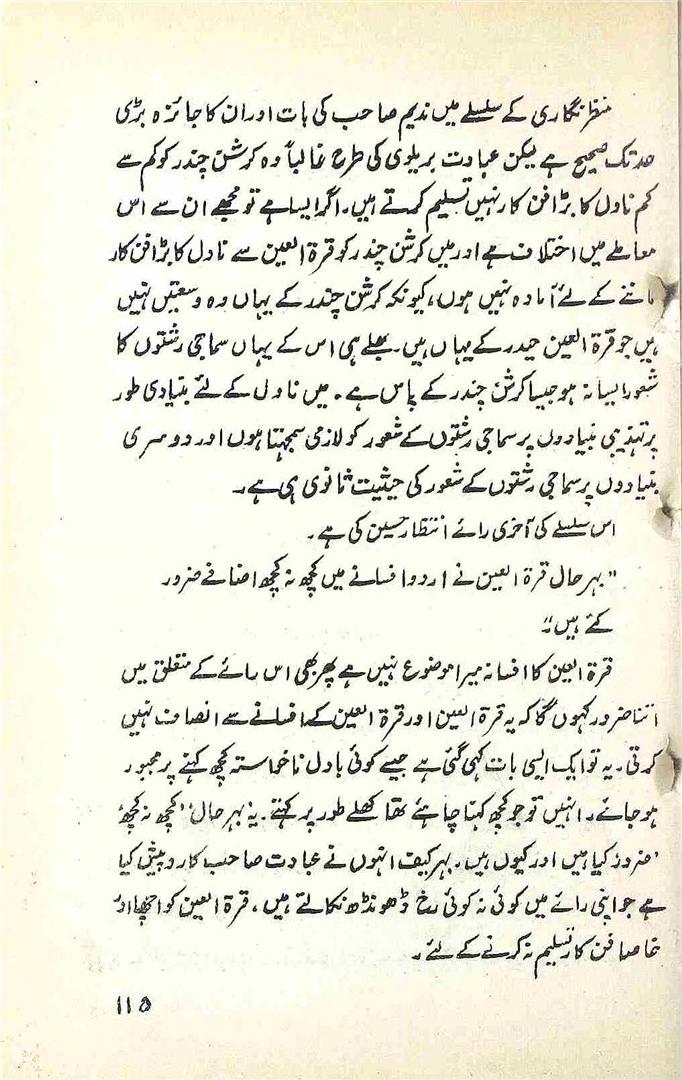 منظر نگاری کے سلسلے میں ندیم صاحب کی بات اور ان کا جائزہ بڑی
حد تک صحیح ہے لیکن عبادت بریلوی کی طرح غالباً وہ کرشن چندر کو کم سے
کم ناول کا بڑا فن کار نہیں تسلیم کرتے ہیں۔ اگر ایسا ہے تو مجھے ان سے اس
معاملے میں اختلاف ہے اور میں کرشن چندر کو قرۃ العین سے ناول کا بڑا فن کار
ماننے کے لئے آمادہ نہیں ہوں، کیونکہ کرشن چندر کے یہاں وہ وسعتیں نہیں
ہیں جو قرۃ العین حیدر کے یہاں ہیں۔ بھلے ہی اس کے یہاں سماجی رشتوں کا
شعور ایسا نہ ہو جیسا کرشن چندر کے پاس ہے۔ میں ناول کے لئے بنیادی طور
پر تہذیبی بنیادوں پر سماجی رشتوں کے شعور کو لازمی سمجھتا ہوں اور دوسری
بنیادوں پر سماجی رشتوں کے شعور کی حیثیت ثانوی ہی ہے۔
اس سلسلے کی آخری رائے انتظار حسین کی ہے۔
"بہر حال قرۃ العین نے اردو افسانے میں کچھ نہ کچھ اضافے ضرور
کئے ہیں۔"
قرۃ العین کا افسانہ میرا موضوع نہیں ہے پھر بھی اس رائے کے متعلق میں
اتنا ضرور کہوں گا کہ یہ قرۃ العین اور قرۃ العین کے افسانے سے انصاف نہیں
کرتی۔ یہ تو ایک ایسی بات کہی گئی ہے جیسے کوئی بادل ناخواستہ کچھ کہنے پر مجبور
ہو جائے۔ انہیں تو جو کچھ کہنا چاہئے تھا کھلے طور پر کہتے۔ یہ 'بہر حال' 'کچھ نہ کچھ'
'ضرور' کیا ہیں اور کیوں ہیں۔ بہر کیف انہوں نے عبادت صاحب کا رویہ پیش کیا
ہے جو اپنی رائے میں کوئی نہ کوئی رخ ڈھونڈھ نکالتے ہیں، قرۃ العین کو اچھا اور
خاصا فن کار تسلیم نہ کرنے کے لئے۔
۱۱۵